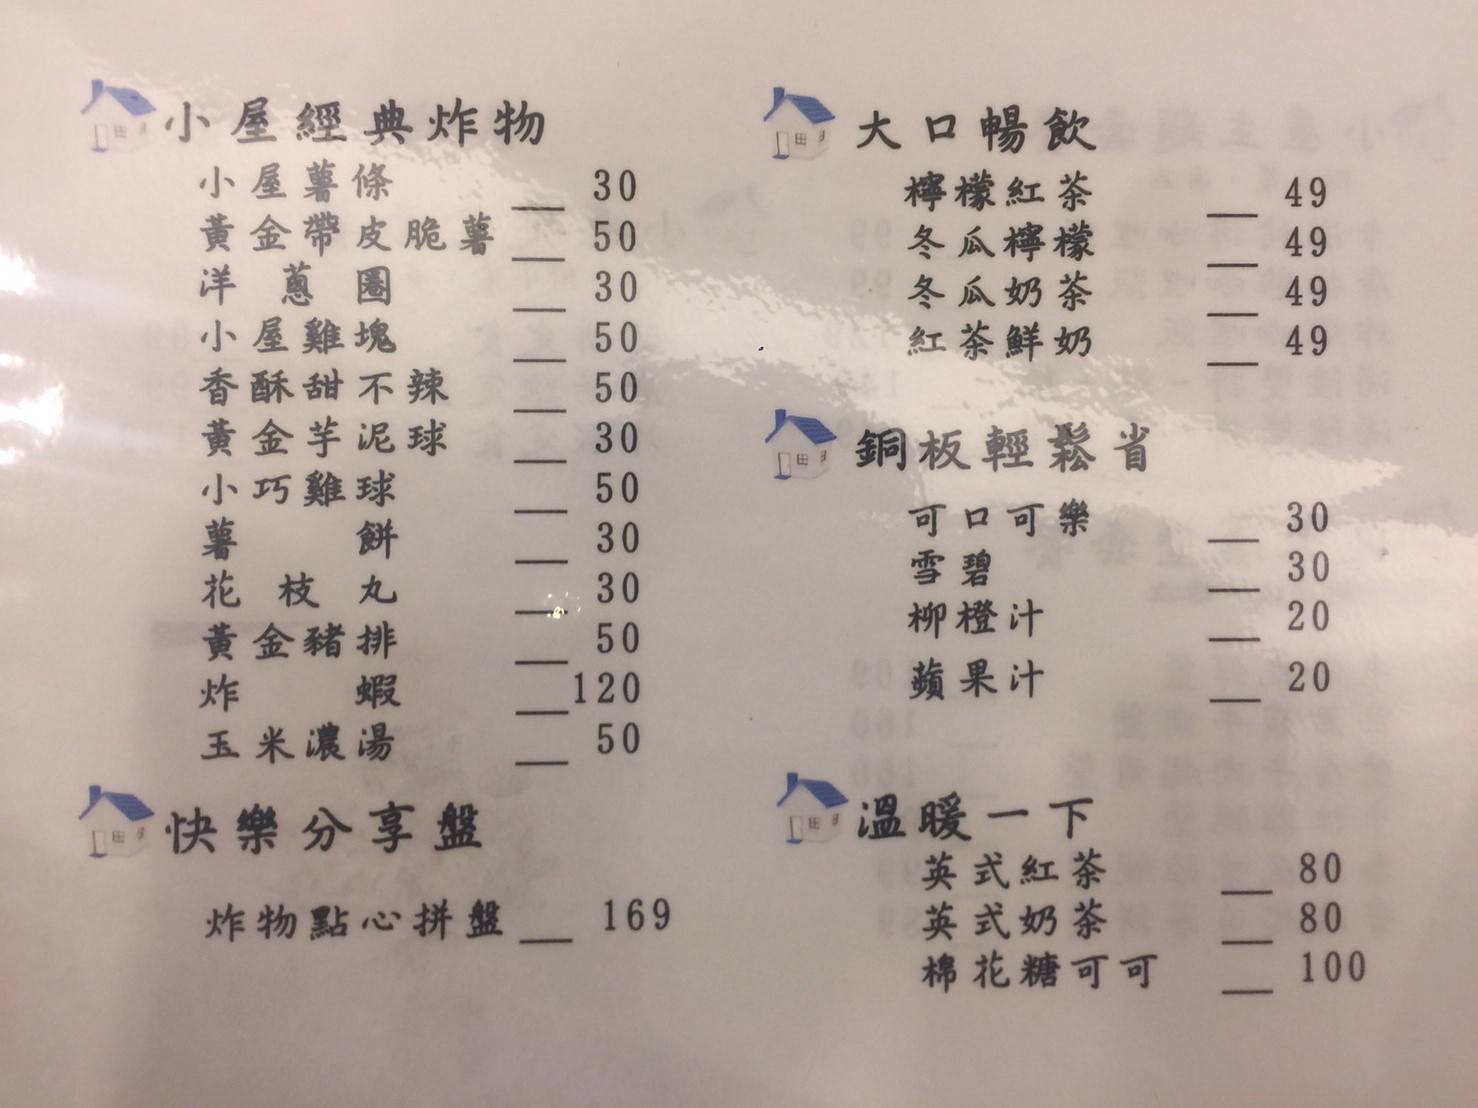 小屋經典炸物
小屋薯條 __ 30
黃金帶皮脆薯 __ 50
洋蔥圈 __ 30
小屋雞塊 __ 50
香酥甜不辣 __ 50
黃金芋泥球 __ 30
小巧雞球 __ 50
薯餅 __ 30
花枝丸 __ 30
黃金豬排 __ 50
炸蝦 __ 120
玉米濃湯 __ 50
快樂分享盤
炸物點心拼盤 __ 169
大口暢飲
檸檬紅茶 __ 49
冬瓜檸檬 __ 49
冬瓜奶茶 __ 49
紅茶鮮奶 __ 49
銅板輕鬆省
可口可樂 __ 30
雪碧 __ 30
柳橙汁 __ 20
蘋果汁 __ 20
溫暖一下
英式紅茶 __ 80
英式奶茶 __ 80
棉花糖可可 __ 100